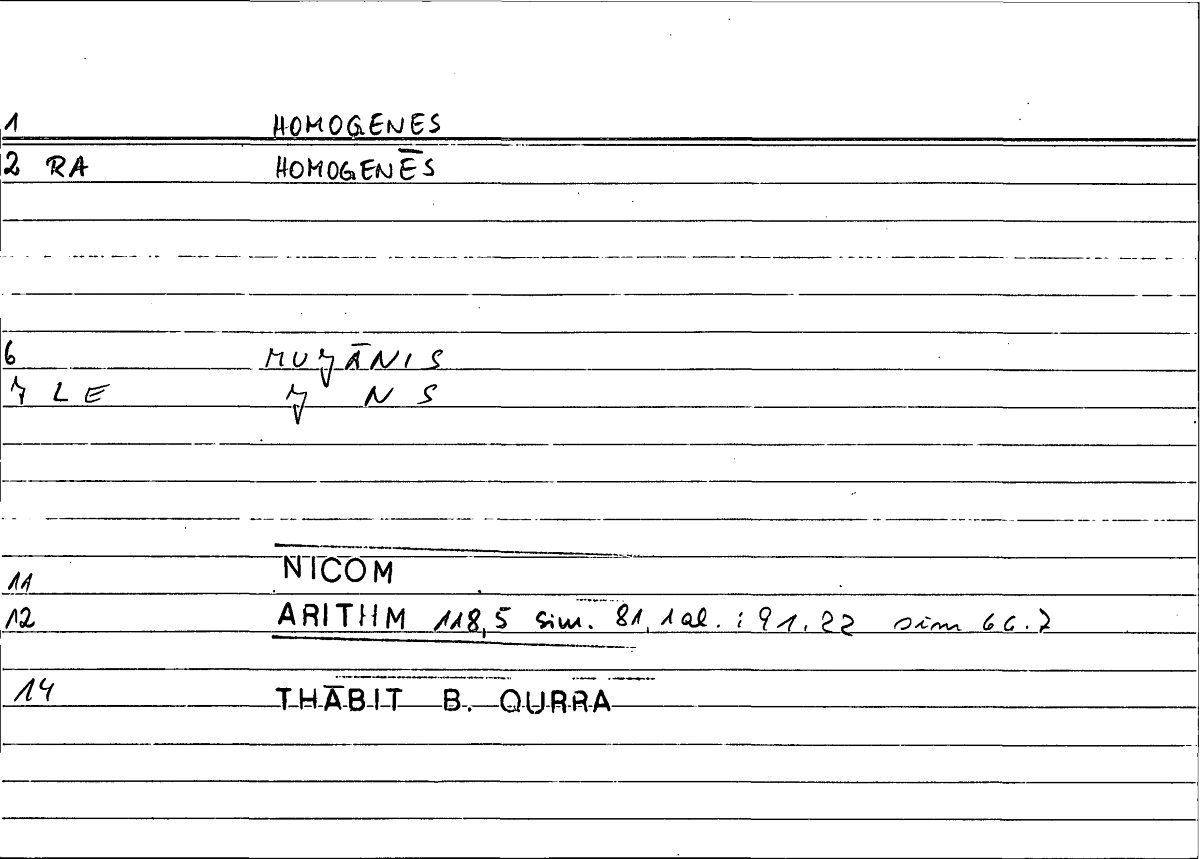 1 HOMOGENES
2 RA HOMOGENĒS
6 MUǦĀNIS
7 LE Ǧ N S
11 NICOM
12 ARITHM 118,5 sim. 81,1 al. : 91.22 sim 66.7
14 THĀBIT B. QURRA